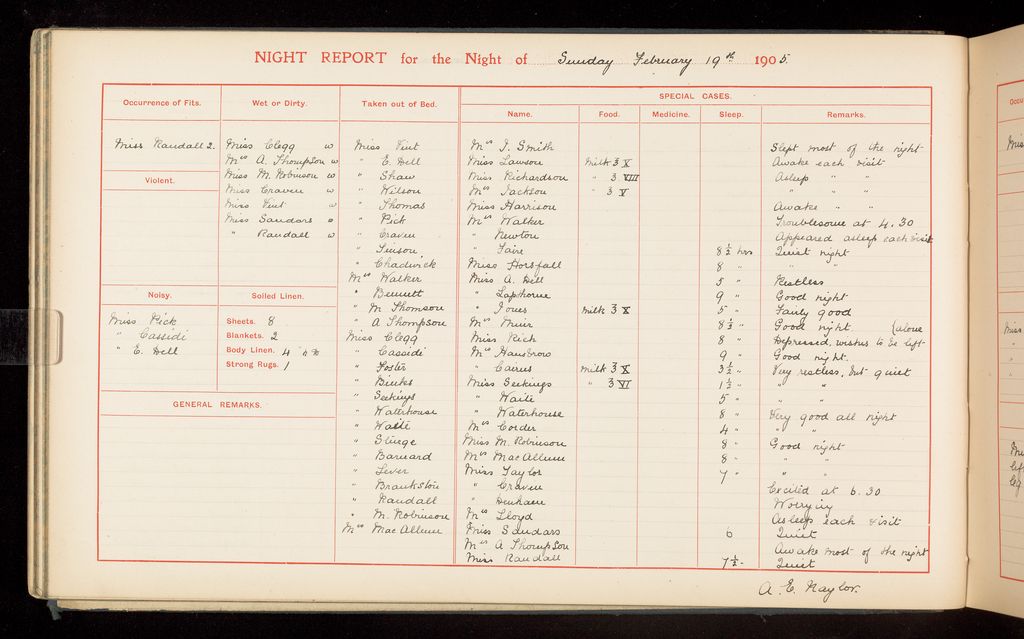 NIGHT REPORT for the Night of Sunday February 19th 1905.
Occurrence of Fits.
Miss Randall 2.
Violent.
Noisy.
Miss Pick
" Cassidi
" E. Dell
Wet or Dirty.
Miss Clegg w
Mrs A. Thompson w
Miss M. Robinson w
Miss Craven w
Miss Vint w
Miss Sandars w
" Randall w
Soiled Linen.
Sheets. 8
Blankets. 2
Body Linen. 4
Strong Rugs. 1
GENERAL REMARKS.
Taken out of Bed.
Miss Vint
" E. Dell
" Shaw
" Wilson
" Thomas
" Pick
" Craven
" Simson
" Chadwick
Mrs Walker
" Bennett
" M. Thomson
" A Thompson
Miss Clegg
" Cassidi
" Foster
" Binks
" Seekings
" Waterhouse
" Waite
" Slinge
" Barnard
" Lever
" Brankston
" Randall
" M. Robinson
Mrs MacAllum
SPECIAL CASES.
Name. Food. Medicine. Sleep. Remarks.
Mrs I. Smith Slept most of the night
Miss Lawson Milk ℥ X Awake each visit
Miss Richardson " ℥ VIII Asleep " "
Mrs Jackson " ℥ V " " "
Miss Harrison Awake " "
Mrs Walker Troublesome at 4.30
" Newton Appeared asleep each visit
" Faire 8½ hrs Quiet night
Miss Horsfall 8 " " "
Miss A. Dell 5 " Restless
" Lapthorne 9 " Good night
" Jones Milk ℥ X 5 " Fairly good
Mrs Muir 8½ " Good night {alone
Miss Rich 8 " Depressed, wishes to be left
Mrs Hanbrow 9 " Good night.
" Cairns Milk ℥ X 3½ " Very restless, but quiet
Miss Seekings " ℥ VI 1½ " " "
" Waite 5 " " "
" Waterhouse 8 " Very good all night
Mrs Corder 4 " " "
Miss M. Robinson 8 " Good night
Mrs MacAllum 8 " " "
Miss Taylor 7 " " "
" Craven Excited at 6.30
" Denham Worrying
Mrs Lloyd Asleep each visit
Miss Sandars 6 Quiet
Mrs A Thompson Awake most of the night
Miss Randall 7½ - Quiet
A. E. Naylor.